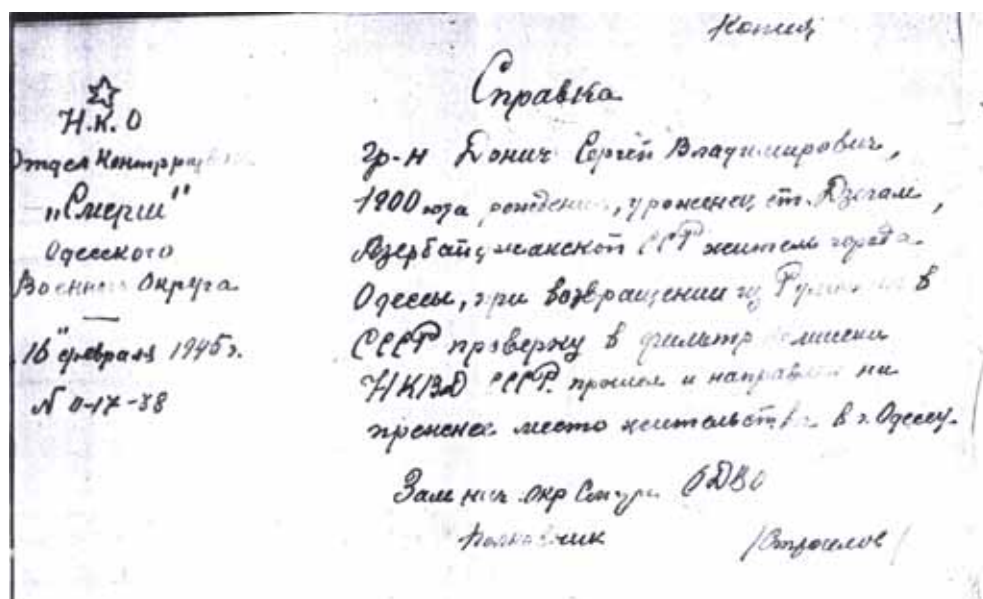 Копия
Справка
Н.К.О
Отдел Контрразведки
"Смерш"
Одесского
Военного Округа
"16" февраля 1945 г.
N 0-17-38
Гр-н Донич Сергей Владимирович,
1900 года рождения, уроженец ст. Дзегам,
Азербайджанской ССР житель города
Одессы, при возвращении из Румынии в
СССР проверку в фильтр комиссии
НКВД СССР прошел и направлен на
прежнее место жительства в г. Одессу.
Зам нач. окр ОДВО
Полковник /Строилов/